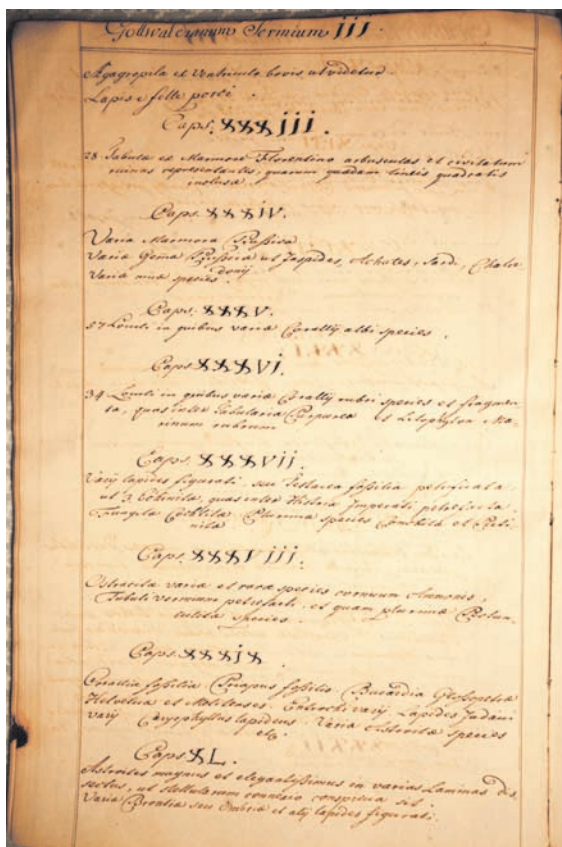 Gottwaldianum Scrinium III.
Ægagropila et Ventriculo bovis, ut videtur.
Lapis e felle porci.
Caps. XXXIII.
28 Tabula ex Marmore Florentino arbusculas et civitatum
ruinas representantes, quarum quædam lineis quadratis
inclusa.
Caps. XXXIV.
Varia Marmora
Varia ut Jaspides, Achates, Sardi, Chalce-
donij
Varia species.
Caps. XXXV.
57 Loculi in quibus varia Corallij albi species.
Caps. XXXVI.
34 Loculi in quibus varia Corallij rubri species et fragmen-
ta, quas inter Tubularia Purpurea et Litophyton Ma-
rinum rubrum
Caps. XXXVII.
Varij lapides figurati seu Testacea fossilia petrificata,
ut 3. Echinita, quas inter Histrix Imperati petrefacta.
Cochlita. Plurima species Conchita et Pecti-
nita
Caps. XXXVIII.
Ostracita varia et rara species cornuum Ammonis,
Tubuli vermium petrefacti, et quam plurima
species.
Caps. XXXIX
Corallia fossilia. Priapus fossilis. Bucardia Glossopetra
Helvetica et Melitenses. Entrochi varij Lapides Judaici
varij Caryophyllus lapideus. Varia Astroita species
etc.
Caps XL.
Astroites magnus et elegantissimus in varias Laminas dis-
sectus, ut stellularum connexio conspicua sit.
Varia Brontia seu Ombria et alij lapides figurati.